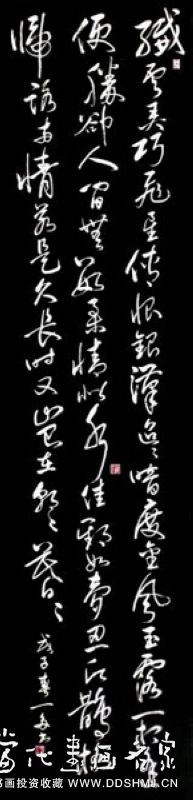 纖雲弄巧飛星傳恨銀漢迢〻暗度金風玉露一相逢
便勝卻人間無數柔情似水佳期如夢忍顧鵲橋
歸路兩情若是久長時又豈在朝〻暮〻
戊子春一
當代書畫家
书画投资收藏 WWW.DDSHMJ.CN